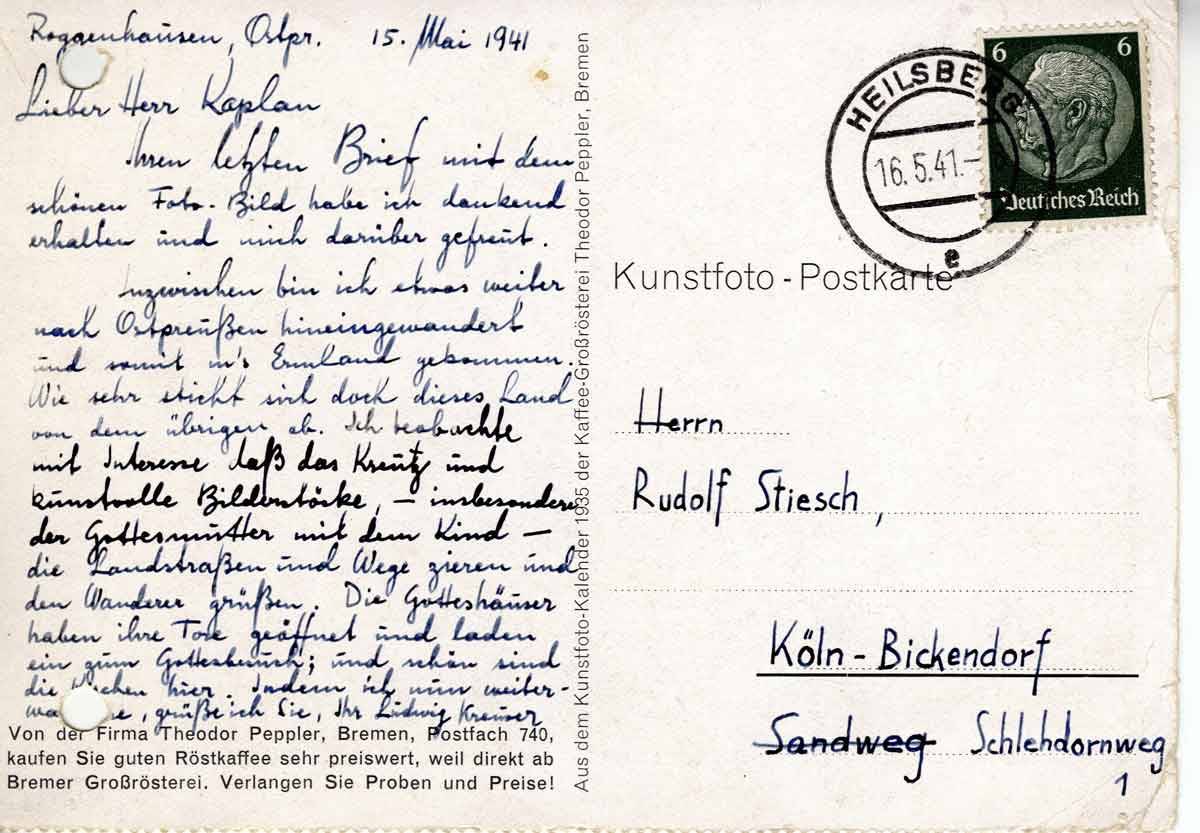 Roggenhausen, Ostpr. 15. Mai 1941
Lieber Herr Kaplan
Ihren letzten Brief mit dem
schönen Foto-Bild habe ich dankend
erhalten und mich darüber gefreut.
Inzwischen bin ich etwas weiter
nach Ostpreußen hineingewandert
und somit in's Ermland gekommen.
Wie sehr sticht sich doch dieses Land
von dem übrigen ab. Ich beobachte
mit Interesse daß das Kreutz und
kunstvolle Bilderstöcke, – insbesondere
der Gottesmutter mit dem Kind –
die Landstraßen und Wege zieren und
den Wanderer grüßen. Die Gotteshäuser
haben ihre Tore geöffnet und laden
ein zum Gottesbesuch; und schön sind
die Kirchen hier. Indem ich nun weiter-
grüße ich Sie, Ihr Ludwig Kreuser
Von der Firma Theodor Peppler, Bremen, Postfach 740,
kaufen Sie guten Röstkaffee sehr preiswert, weil direkt ab
Bremer Großrösterei. Verlangen Sie Proben und Preise!
Aus dem Kunstfoto-Kalender 1935 der Kaffee-Großrösterei Theodor Peppler, Bremen
6 6
Deutsches Reich
HEILSBERG
16.5.41.-
e
Kunstfoto-Postkarte
Herrn
Rudolf Stiesch,
Köln-Bickendorf
Sandweg Schlehdornweg
1